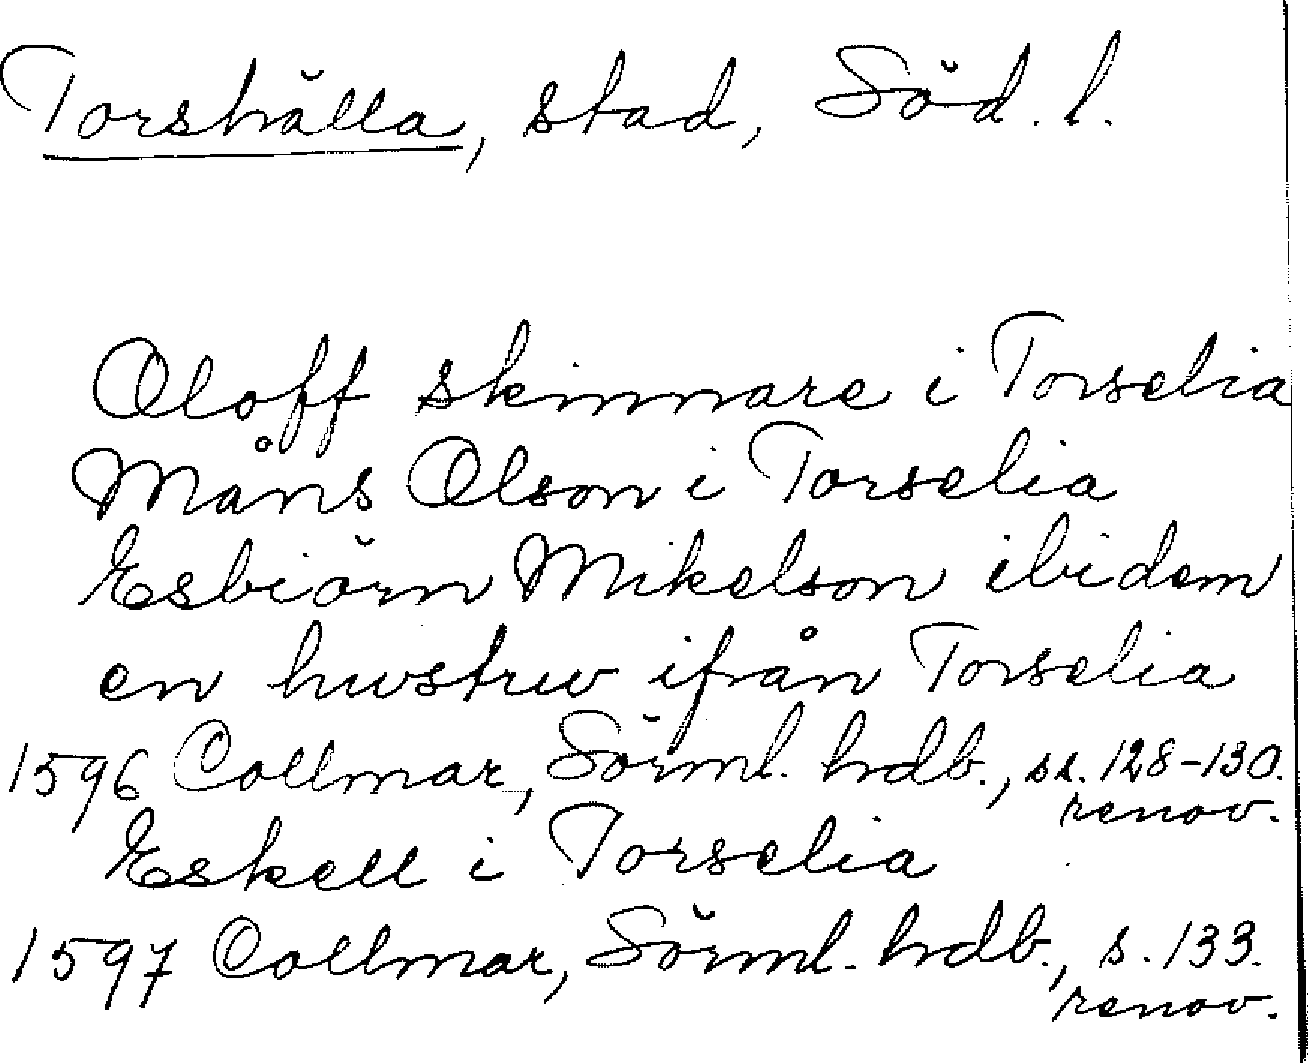 Torshälla, stad, Söd. l.
Oloff skinnare i Torselia
Måns Olson i Torselia
Esbiörn Mikelson ibidem
en hwstrw ifrån Torselia
1596 Collmar, Sörml. hdb., ss. 128-130.
renov.
Eskell i Torselia
1597 Collmar, Sörml. hdb., s. 133.
renov.